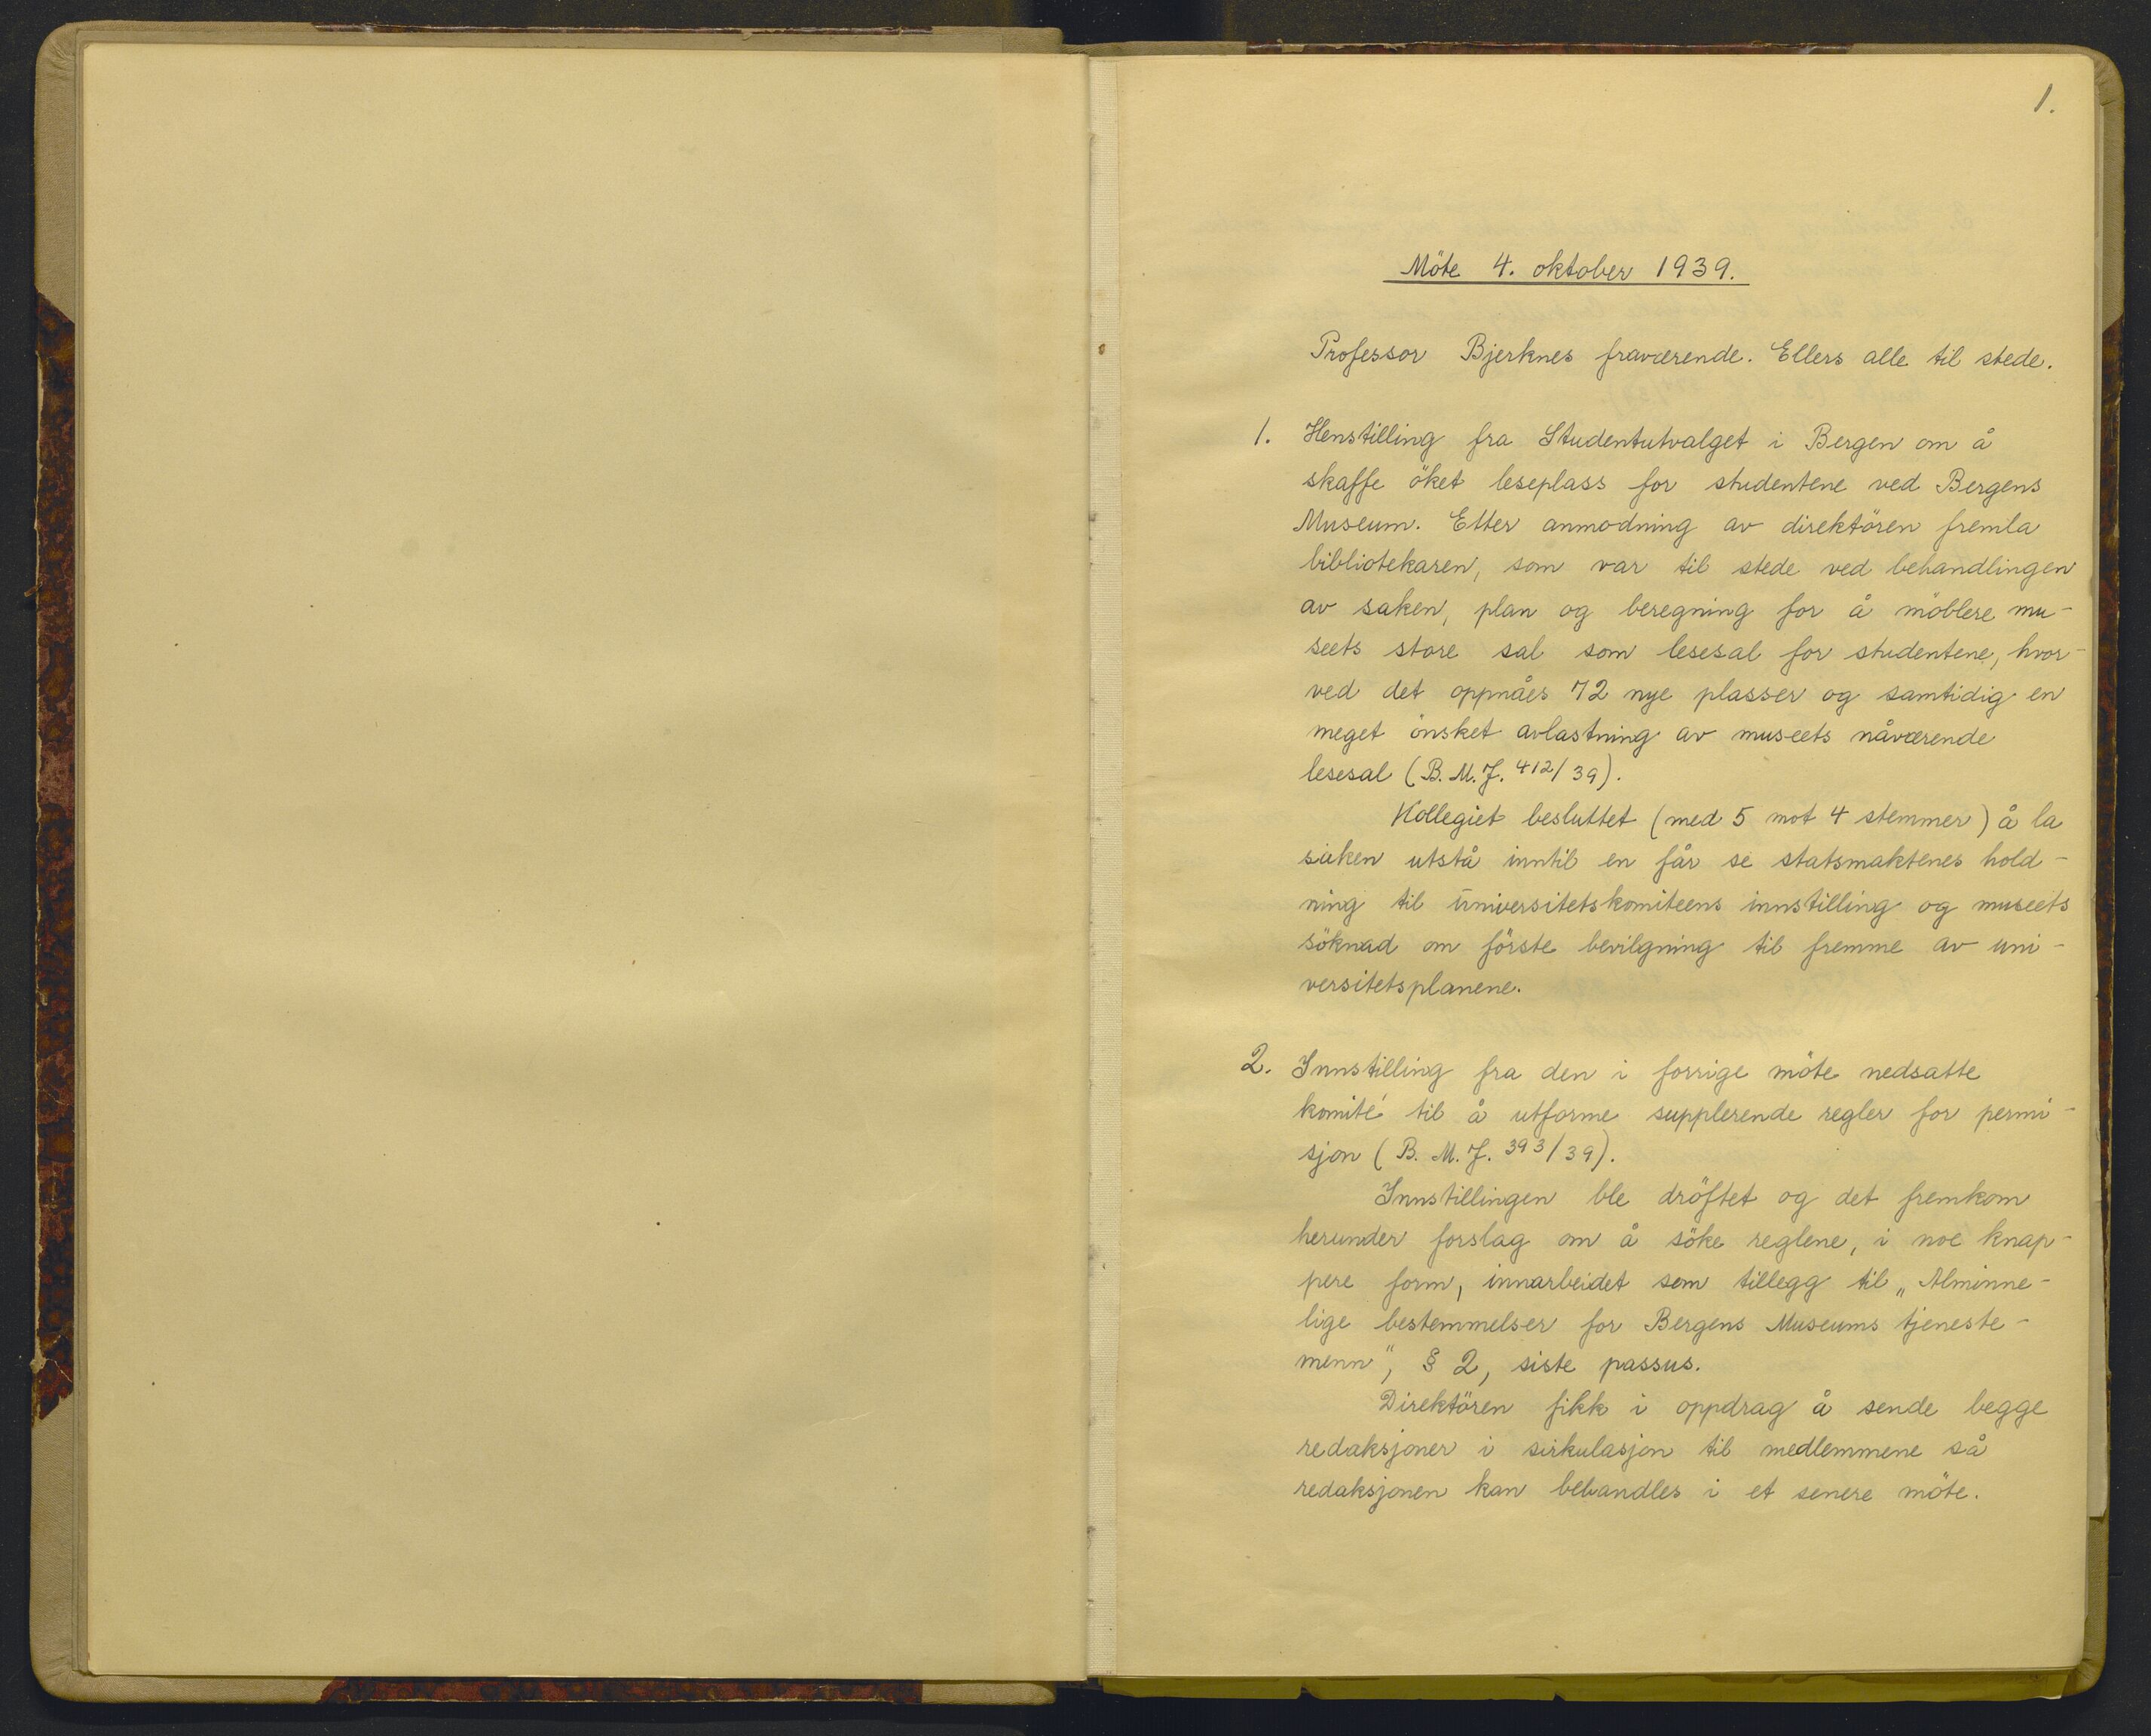 1.
Möte 4. oktober 1939.
Professor Bjerknes fraværende. Ellers alle til stede.
1. Henstilling fra Studentutvalget i Bergen om å
skaffe öket leseplass for studentene ved Bergens
Museum. Etter anmodning av direktören fremla
bibliotekaren, som var til stede ved behandlingen
av saken, plan og beregning for å möblere mu-
seets store sal som lesesal for studentene, hvor-
ved det oppnåes 72 nye plasser og samtidig en
meget önsket avlastning av museets nåværende
lesesal (B. M. J. 412/39).
Kollegiet besluttet (med 5 mot 4 stemmer) å la
saken utstå inntil en får se statsmaktenes hold-
ning til universitetskomiteens innstilling og museets
söknad om förste bevilgning til fremme av uni-
versitetsplanene.
2. Innstilling fra den i forrige möte nedsatte
komité til å utforme supplerende regler for permi-
sjon (B. M. J. 393/39).
Innstillingen ble dröftet og det fremkom
herunder forslag om å söke reglene, i noe knap-
pere form, innarbeidet som tillegg til „Alminne-
lige bestemmelser for Bergens Museums tjeneste-
menn", § 2, siste passus.
Direktören fikk i oppdrag å sende begge
redaksjoner i sirkulasjon til medlemmene så
redaksjonen kan behandles i et senere möte.